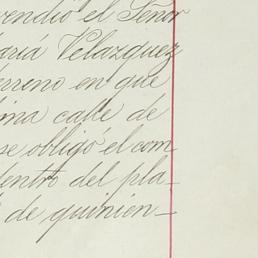 vendió el Señor
aría Velazquez
erreno en que
ina calle de
se obligó el com
dentro del pla_
de quinien_